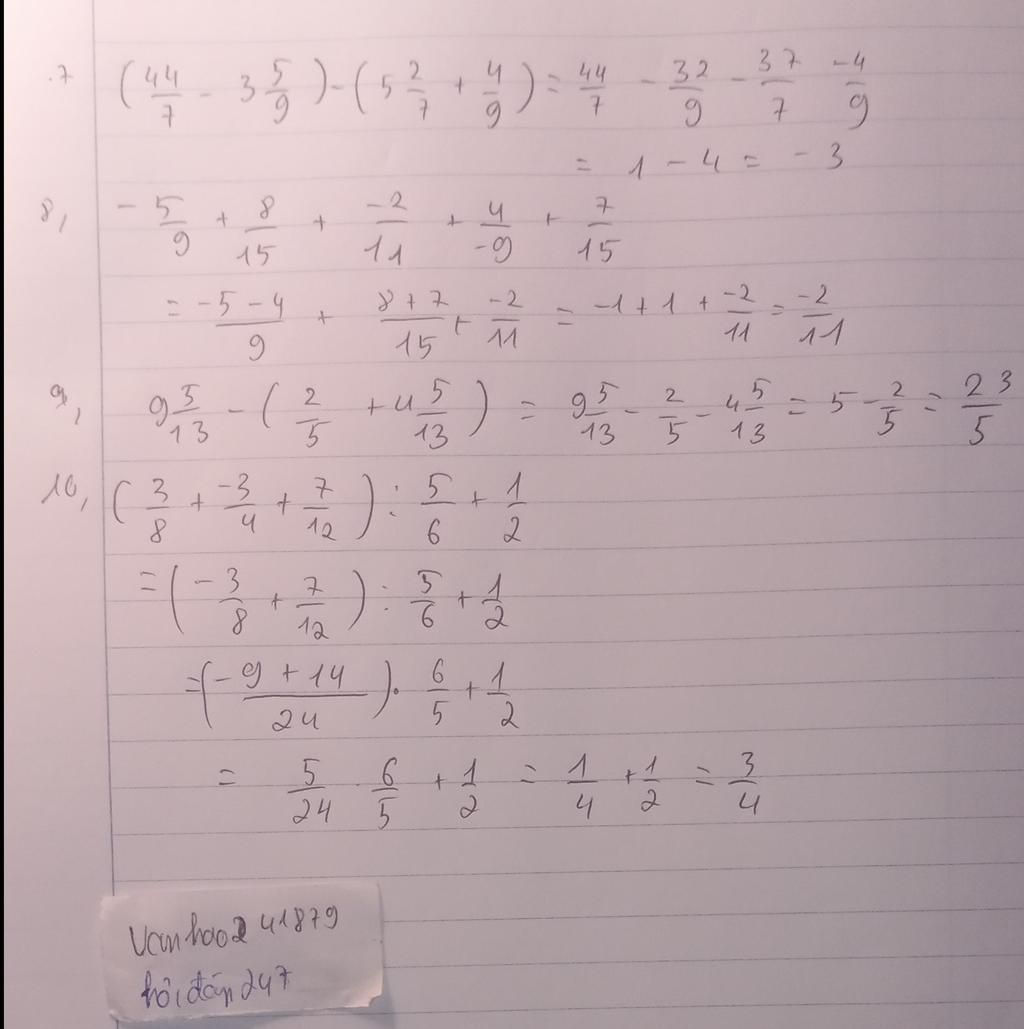 .7 (44/7 - 3 5/9) - (5 2/7 + 4/9) = 44/7 - 32/9 - 37/7 -4/9
= 1 - 4 = -3
8, -5/9 + 8/15 + -2/11 + 4/-9 + 7/15
= -5-4/9 + 8+7/15 + -2/11 = -1 + 1 + -2/11 = -2/11
9, 9 5/13 - (2/5 + 4 5/13) = 9 5/13 - 2/5 - 4 5/13 = 5 - 2/5 = 23/5
10, (3/8 + -3/4 + 7/12) : 5/6 + 1/2
= (-3/8 + 7/12) : 5/6 + 1/2
= (-9+14/24) . 6/5 + 1/2
= 5/24 . 6/5 + 1/2 = 1/4 + 1/2 = 3/4
vanhao241879
hỏi đáp 247